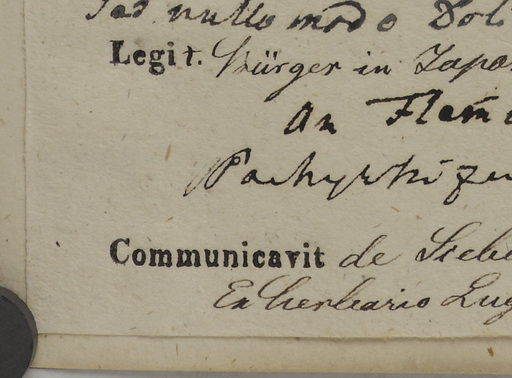 Sed nullo modo Dol
Legit. Bürger in Japo
an Flem
Pachyrhizu
Communicavit de Siebo
Ex herbario Lug